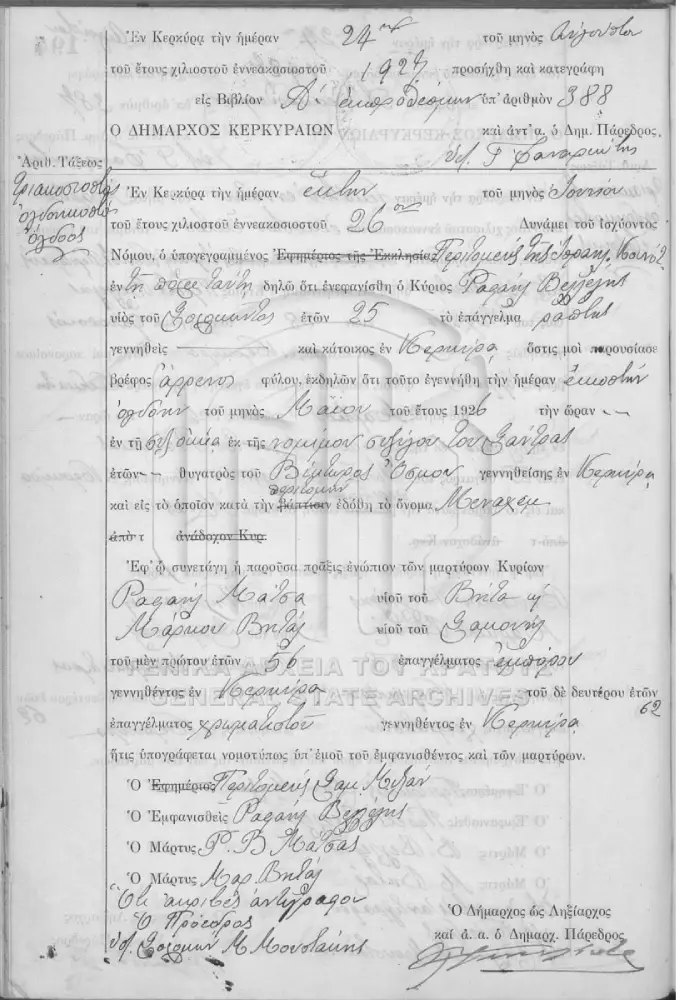 Ἐν Κερκύρᾳ τὴν ἡμέραν 24ην τοῦ μηνὸς Αὐγούστου
τοῦ ἔτους χιλιοστοῦ ἐννεακοσιοστοῦ 1927 προσήχθη καὶ κατεγράφη
εἰς Βιβλίον Α. ἐκπροθέσμων ὑπ' ἀριθμὸν 388
Ο ΔΗΜΑΡΧΟΣ ΚΕΡΚΥΡΑΙΩΝ καὶ ἀντ' α. ὁ Δημ. Πάρεδρος.
Ἀριθ. Τάξεως
Τριακοσιοστὸς
ὀγδοηκοστὸς
ὄγδοος
Ἐν Κερκύρᾳ τὴν ἡμέραν ἕκτην τοῦ μηνὸς Ἰουνίου
τοῦ ἔτους χιλιοστοῦ ἐννεακοσιοστοῦ 26ου Δυνάμει τοῦ ἰσχύοντος
Νόμου, ὁ ὑπογεγραμμένος Ἐφημέριος τῆς Ἐκκλησίας Περιτομεὺς τῆς Ἰσραηλ. Κοινό
ἐν τῇ πόλει ταύτῃ δηλῶ ὅτι ἐνεφανίσθη ὁ Κύριος Ραφαὴλ Βελλέλης
υἱὸς τοῦ ἐτῶν 25 τὸ ἐπάγγελμα ράπτης
γεννηθεὶς καὶ κάτοικος ἐν Κερκύρᾳ ὅστις μοὶ παρουσίασε
βρέφος ἄρρενος φύλου, ἐκδηλῶν ὅτι τοῦτο ἐγεννήθη τὴν ἡμέραν εἰκοστὴν
ὀγδόην τοῦ μηνὸς Μαΐου τοῦ ἔτους 1926 τὴν ὥραν
ἐν τῇ οἰκίᾳ ἐκ τῆς νομίμου συζύγου του
ἐτῶν θυγατρὸς τοῦ Βίκτωρος Ὄσμου γεννηθείσης ἐν Κερκύρᾳ
περιτομὴν
καὶ εἰς τὸ ὁποῖον κατὰ τὴν βάπτισιν ἐδόθη τὸ ὄνομα Μεναχὲμ
ἀπὸ τ ἀνάδοχον Κυρ.
Ἐφ' ᾧ συνετάγη ἡ παροῦσα πρᾶξις ἐνώπιον τῶν μαρτύρων Κυρίων
Ραφαὴλ Μάτσα υἱοῦ τοῦ Βήτα ἢ
Μάρκου Βητὰλ υἱοῦ τοῦ Σαμουὴλ
τοῦ μὲν πρώτου ἐτῶν 56 ἐπαγγέλματος ἐμπόρου
γεννηθέντος ἐν Κερκύρᾳ τοῦ δὲ δευτέρου ἐτῶν 62
ἐπαγγέλματος χρωματιστοῦ γεννηθέντος ἐν Κερκύρᾳ
ἥτις ὑπογράφεται νομοτύπως ὑπ' ἐμοῦ τοῦ ἐμφανισθέντος καὶ τῶν μαρτύρων.
Ὁ Ἐφημέριος Περιτομεὺς Σαμ. Μιζάν
Ὁ Ἐμφανισθεὶς Ραφαὴλ Βελλέλης
Ὁ Μάρτυς Ρ. Β Μάτσας
Ὁ Μάρτυς Μαρ. Βητὰλ
Ὅτι ἀκριβὲς ἀντίγραφον
Ὁ Πρόεδρος
Μ. Μουστάκης
Ὁ Δήμαρχος ὡς Ληξίαρχος
καί ἀ. α. ὁ Δημαρχ. Πάρεδρος
ΓΕΝΙΚΑ ΑΡΧΕΙΑ ΤΟΥ ΚΡΑΤΟΥΣ
GENERAL STATE ARCHIVES